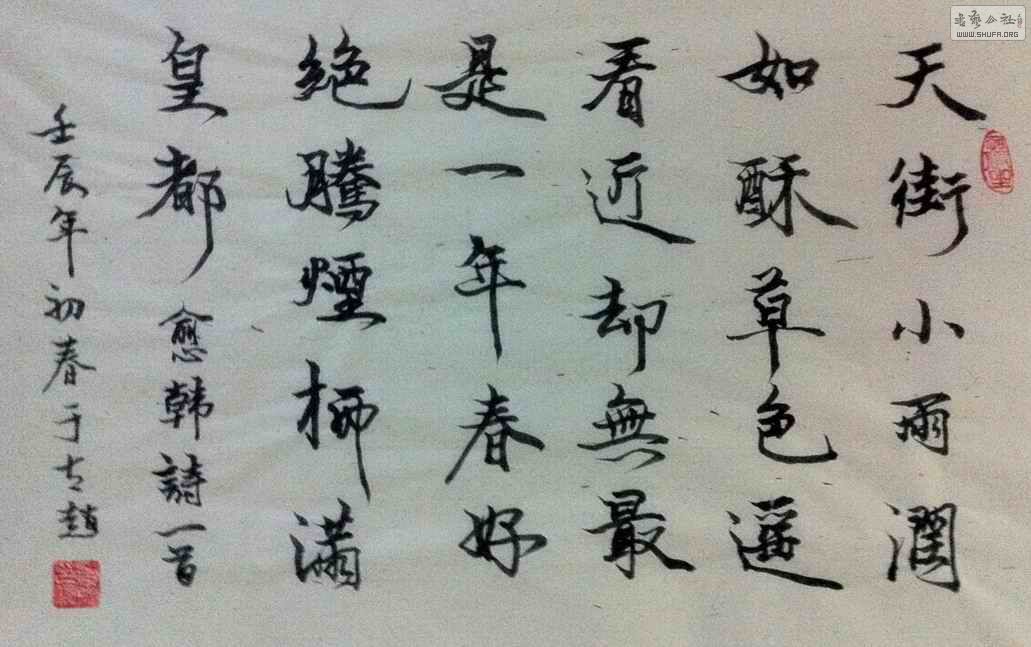 天街小雨潤
如酥草色遥
看近却無最
是一年春好
絶騰煙柳滿
皇都 愈韩詩一首
壬辰年初春于古趙
书艺公社
WWW.SHUFA.ORG